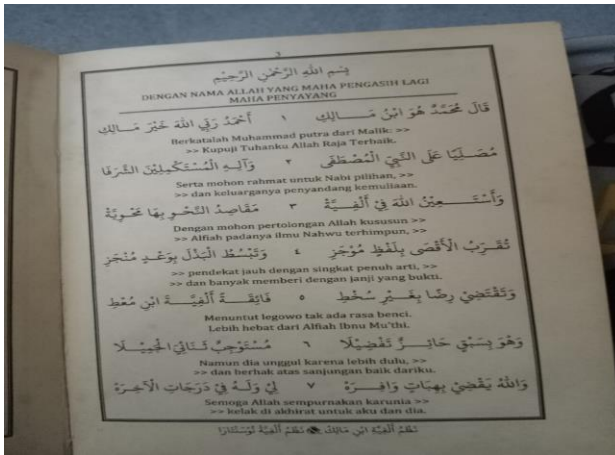 بِسْمِ اللهِ الرَّحْمٰنِ الرَّحِيْمِ
DENGAN NAMA ALLAH YANG MAHA PENGASIH LAGI
MAHA PENYAYANG
قَالَ مُحَمَّدٌ هُوَ ابْنُ مَــالِكِ ١ أَحْمَدُ رَبِّي اللهَ خَيْرَ مَــالِكِ
Berkatalah Muhammad putra dari Malik: >>
>> Kupuji Tuhanku Allah Raja Terbaik.
مُصَلِّيًا عَلَى النَّبِيِّ الْمُصْطَفَى ٢ وَآلِــهِ الْمُسْتَكْمِلِيْنَ الشَّرَفَا
Serta mohon rahmat untuk Nabi pilihan, >>
>> dan keluarganya penyandang kemuliaan.
وَأَسْتَــعِيْنُ اللهَ فِيْ أَلْفِيَّةْ ٣ مَقَاصِدُ النَّحْوِ بِهَا مَحْوِيَّةْ
Dengan mohon pertolongan Allah kususun >>
>> Alfiah padanya ilmu Nahwu terhimpun, >>
تُقَرِّبُ الْأَقْصَى بِلَفْظٍ مُوْجَزِ ٤ وَتَبْسُطُ الْبَذْلَ بِوَعْدٍ مُنْجَزِ
>> pendekat jauh dengan singkat penuh arti, >>
>> dan banyak memberi dengan janji yang bukti.
وَتَقْتَضِيْ رِضًا بِغَيْرِ سُخْطِ ٥ فَائِقَــةً أَلْفِيَّــةَ ابْنِ مُعْطِ
Menuntut legowo tak ada rasa benci.
Lebih hebat dari Alfiah Ibnu Mu'thi.
وَهْوَ بِسَبْقٍ حَائِــزٌ تَفْضِيْلًا ٦ مُسْتَوْجِبٌ ثَنَائِيَ الْجَمِيْــلَا
Namun dia unggul karena lebih dulu, >>
>> dan berhak atas sanjungan baik dariku.
وَاللهُ يَقْضِيْ بِهِبَاتٍ وَافِــرَةْ ٧ لِيْ وَلَــهُ فِيْ دَرَجَاتِ الْآخِرَةْ
Semoga Allah sempurnakan karunia >>
>> kelak di akhirat untuk aku dan dia.